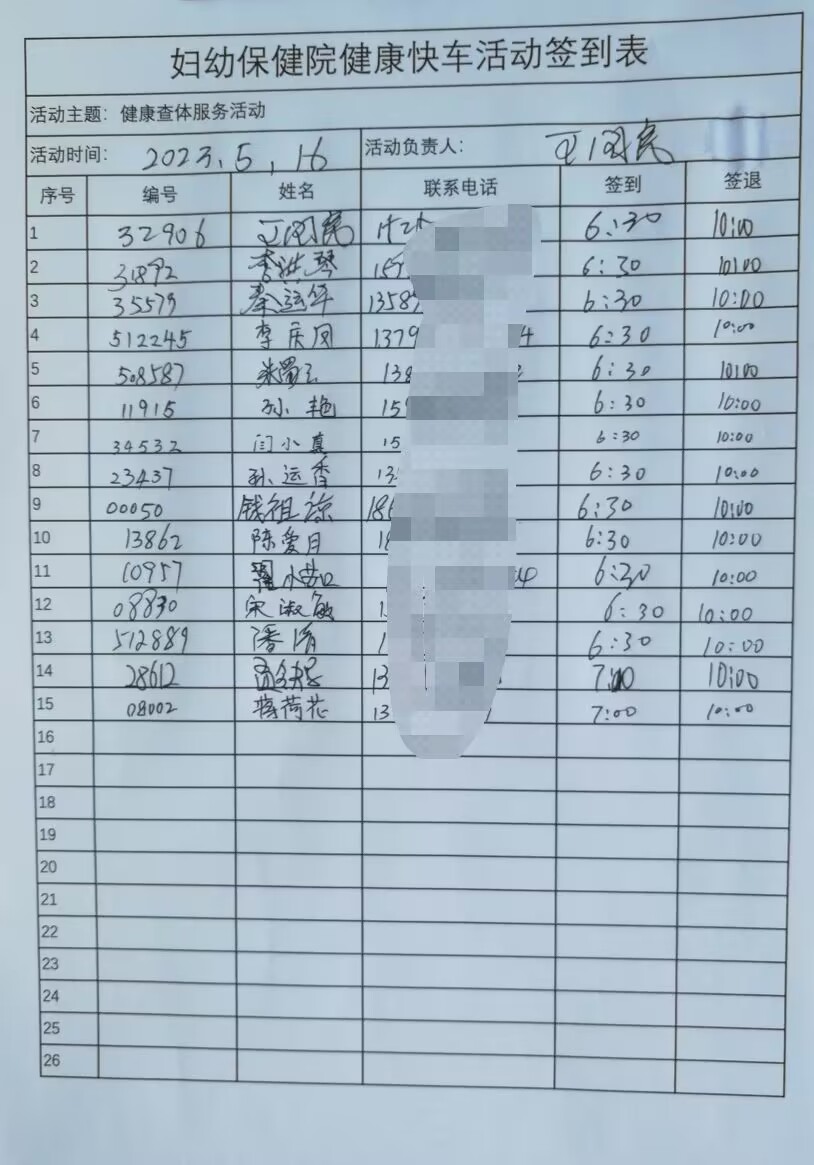 妇幼保健院健康快车活动签到表
活动主题：健康查体服务活动
活动时间： 2023.5.16 活动负责人： 王国宾
序号 编号 姓名 联系电话 签到 签退
1 32906 王国宾 6:30 10:00
2 31892 李洪琴 6:30 10:00
3 35579 秦运华 1358 6:30 10:00
4 512245 李庆凤 1379 4 6:30 10:00
5 508587 138 6:30 10:00
6 11915 孙艳 15 6:30 10:00
7 34532 闫小真 15 6:30 10:00
8 23437 孙运香 13 6:30 10:00
9 00050 钱祖琼 18 6:30 10:00
10 13862 陈爱月 1 6:30 10:00
11 10957 4 6:30 10:00
12 08830 宋淑敏 1 6:30 10:00
13 512889 潘清 1 6:30 10:00
14 28612 13 7:00 10:00
15 08002 蒋荷花 13 7:00 10:00
16
17
18
19
20
21
22
23
24
25
26